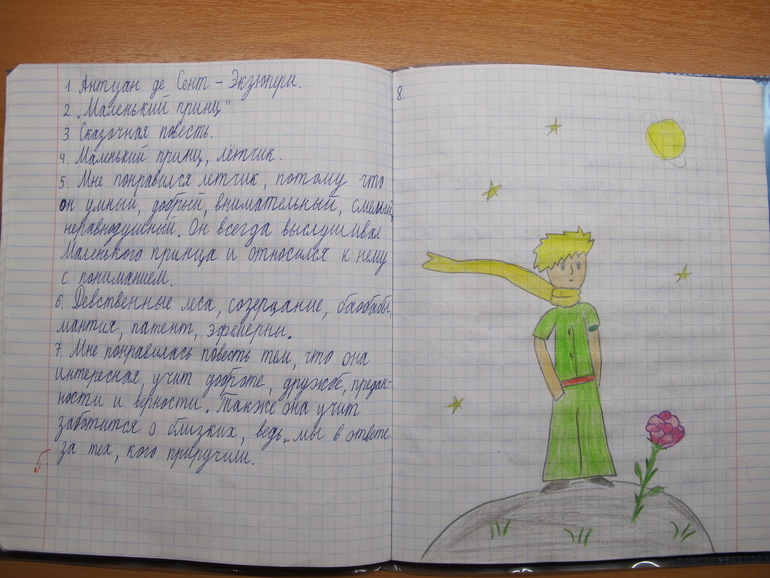 1. Антуан де Сент-Экзюпери.
2. „Маленький принц".
3. Сказочная повесть.
4. Маленький принц, лётчик.
5. Мне понравился летчик, потому что
он умный, добрый, внимательный, смелый,
неравнодушный. Он всегда выслушивал
Маленького принца и относился к нему
с пониманием.
6. Девственные леса, созерцание, баобабы,
мантия, патент, эфемерны.
7. Мне понравилась повесть тем, что она
интересная, учит доброте, дружбе, предан-
ности и верности. Также она учит
заботится о близких, ведь „мы в ответе
за тех, кого приручили.
5
8.